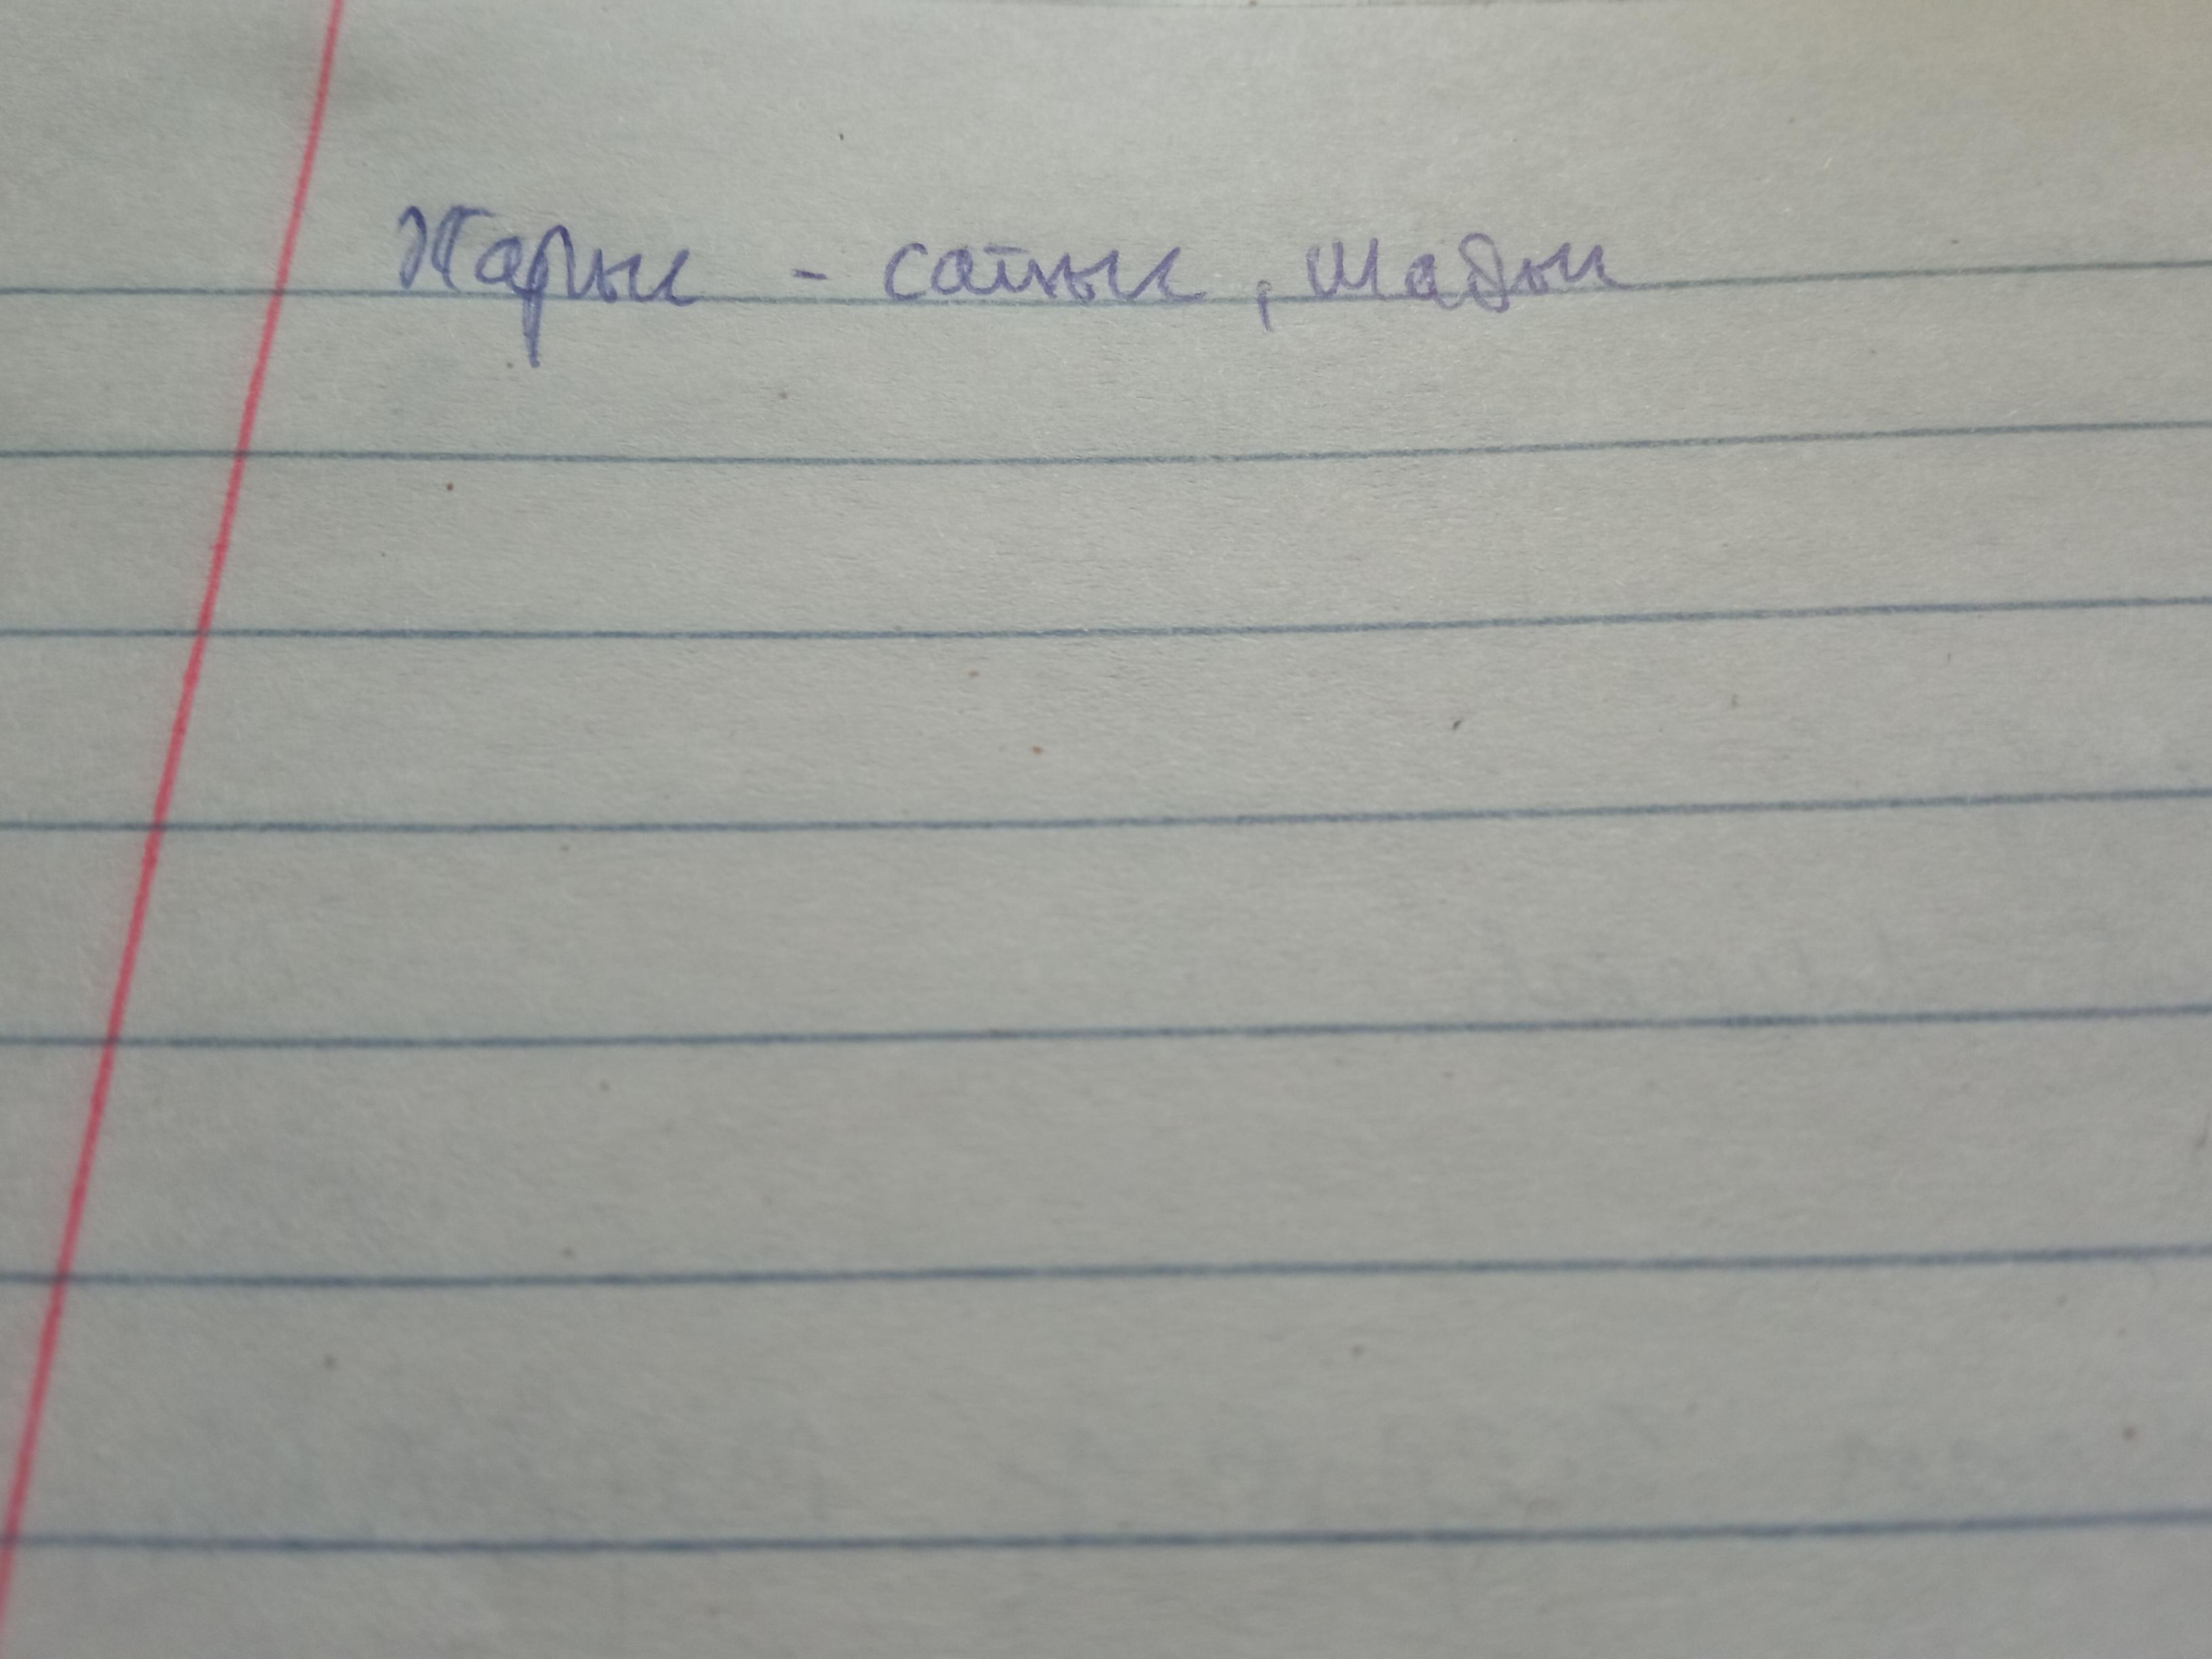 Жарык - сатык, шадык